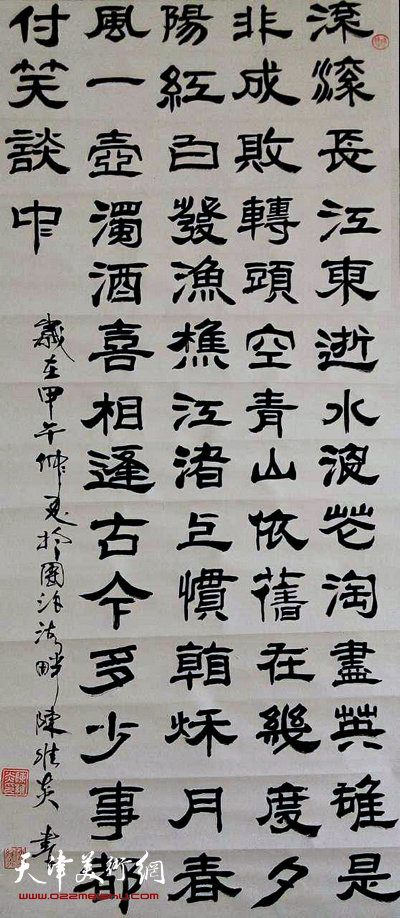 滚滚長江東逝水浪花淘盡英雄是
非成敗轉頭空青山依舊在幾度夕
陽紅白發漁樵江渚上慣看秋月春
風一壺濁酒喜相逢古今多少事都
付笑談中
歲在甲午仲夏於團泊湖畔陳 書
天津美術網
www.022meishu.com